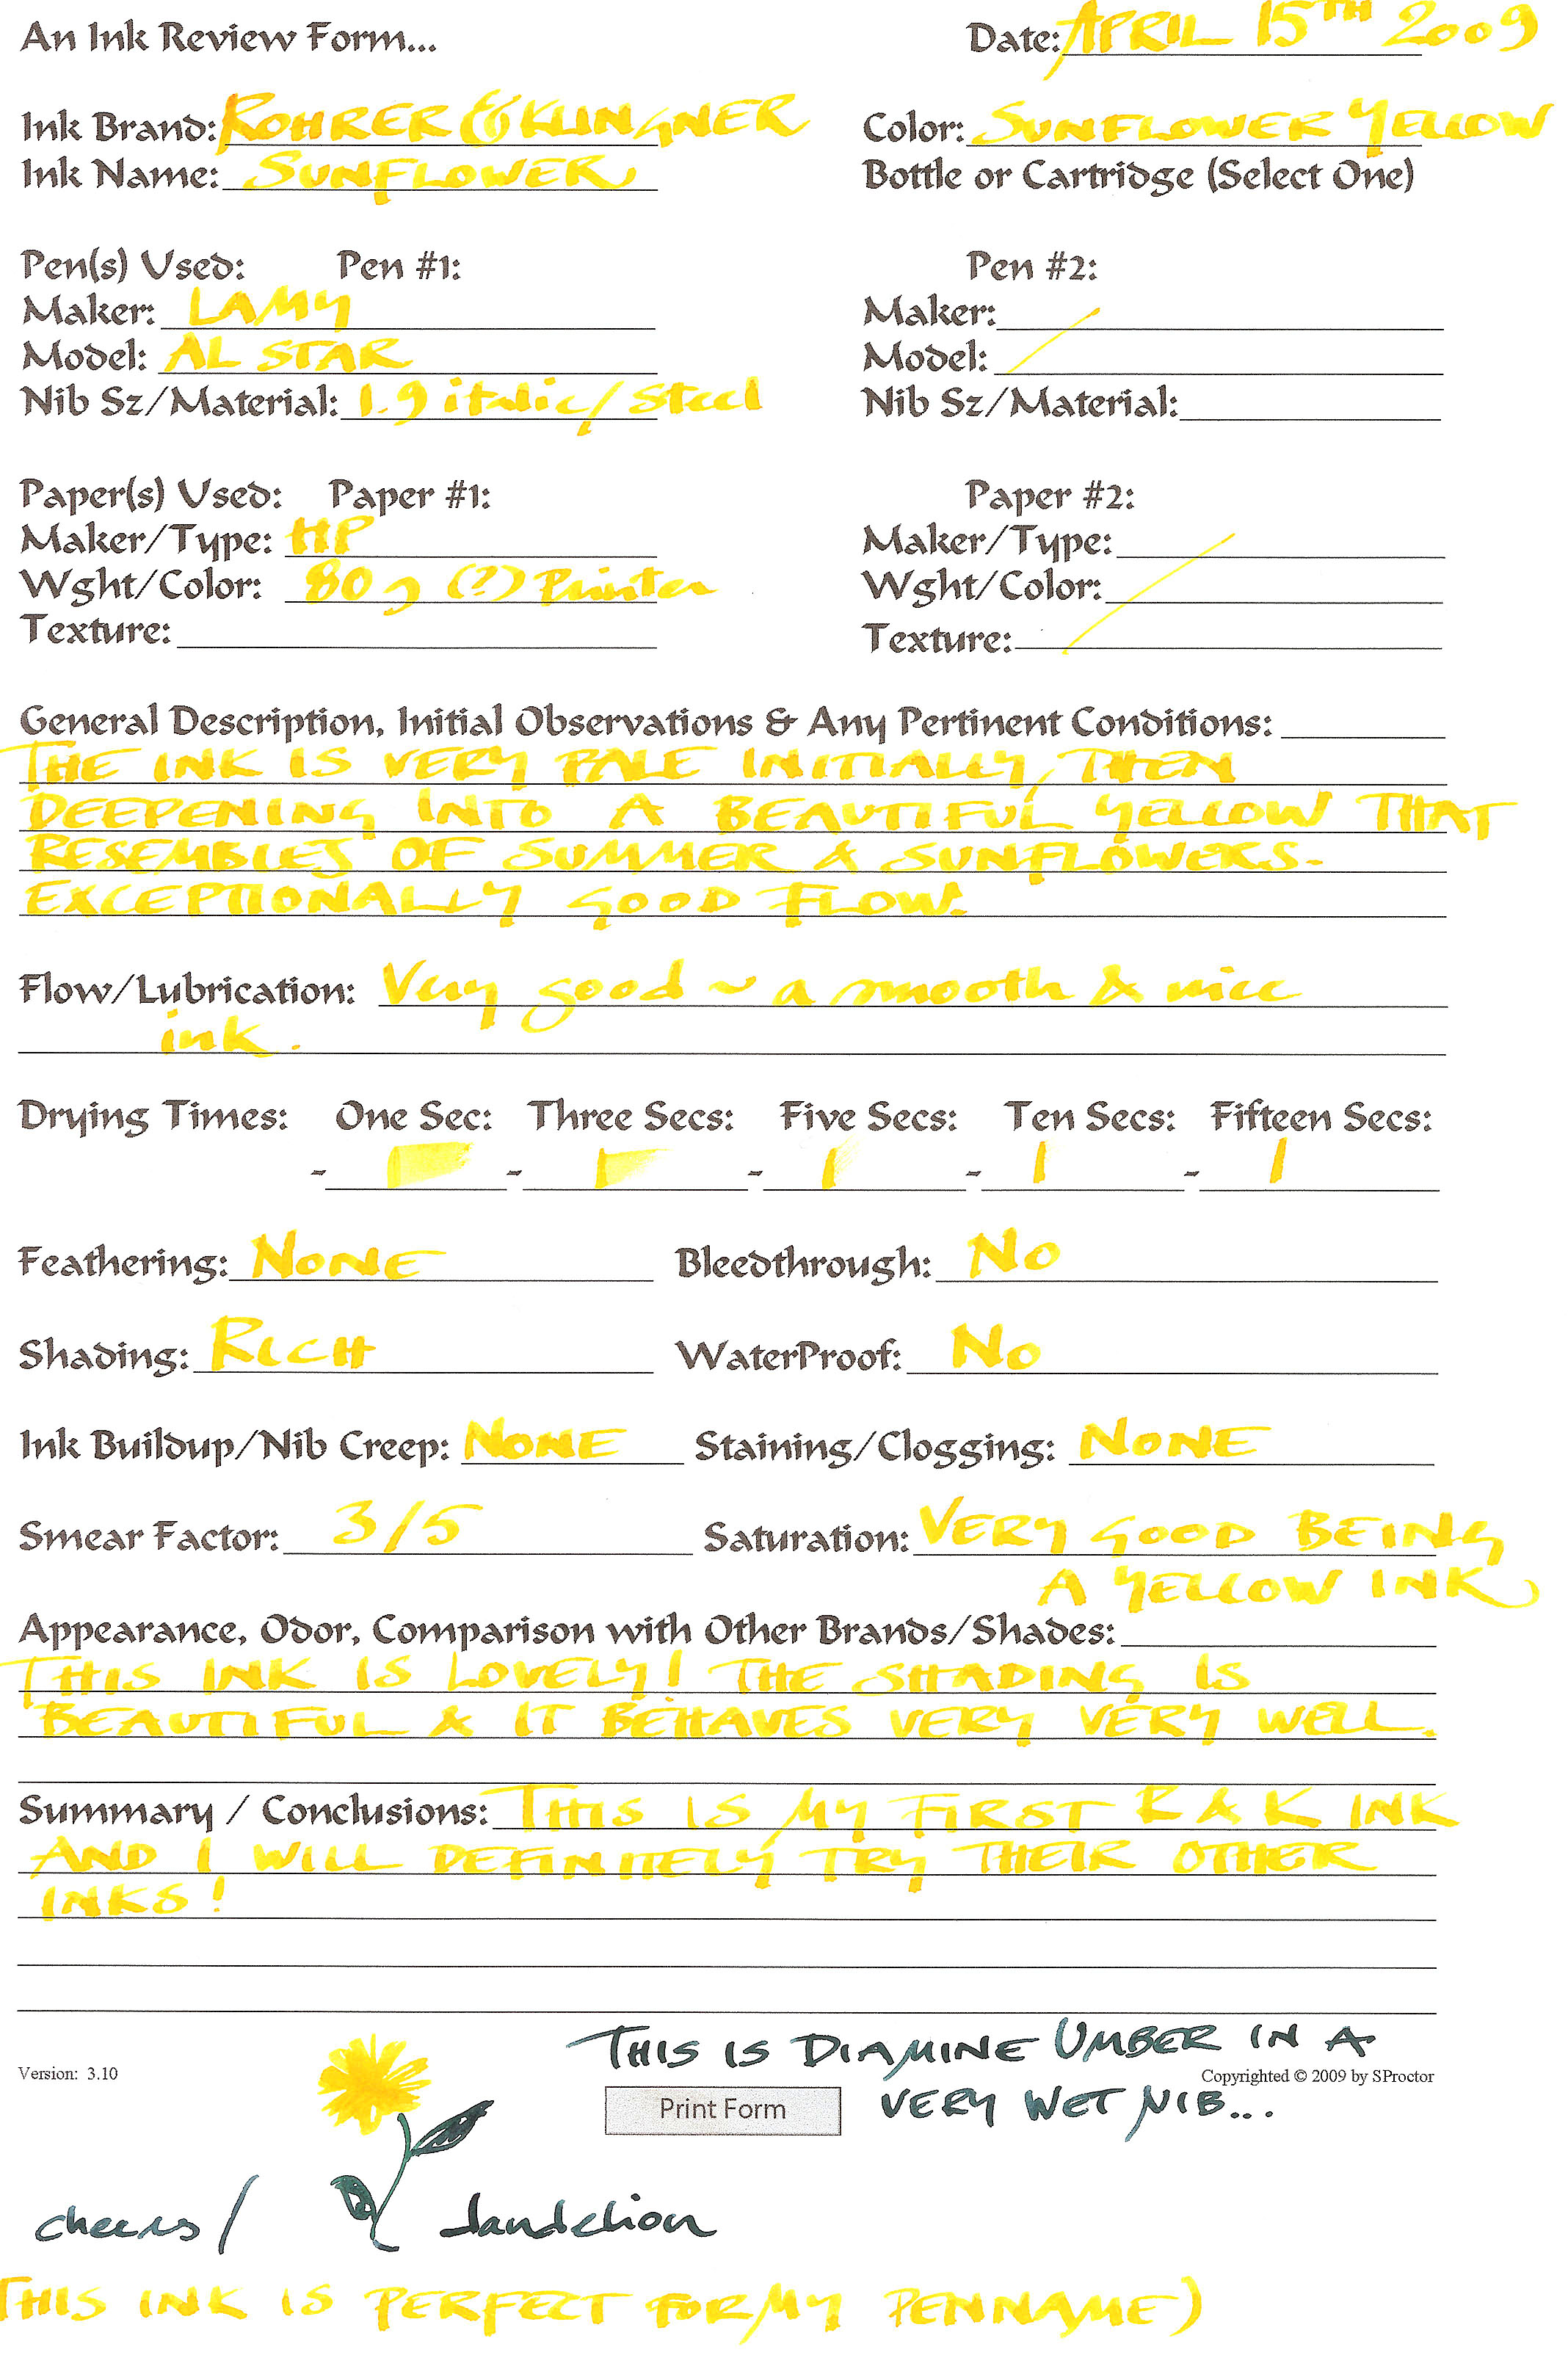 An Ink Review Form... Date: APRIL 15TH 2009
Ink Brand: ROHRER & KLINGNER Color: SUNFLOWER YELLOW
Ink Name: SUNFLOWER Bottle or Cartridge (Select One)
Pen(s) Used: Pen #1: Pen #2:
Maker: LAMY Maker:
Model: AL STAR Model:
Nib Sz/Material: 1.9 italic/Steel Nib Sz/Material:
Paper(s) Used: Paper #1: Paper #2:
Maker/Type: HP Maker/Type:
Wght/Color: 80 g (?) Printer Wght/Color:
Texture: Texture:
General Description, Initial Observations & Any Pertinent Conditions:
THE INK IS VERY PALE INITIALLY, THEN
DEEPENING INTO A BEAUTIFUL YELLOW THAT
RESEMBLES OF SUMMER & SUNFLOWERS.
EXCEPTIONALLY GOOD FLOW.
Flow/Lubrication: Very good ~ a smooth & nice
ink.
Drying Times: One Sec: Three Secs: Five Secs: Ten Secs: Fifteen Secs:
- - - - -
Feathering: NONE Bleedthrough: NO
Shading: RICH WaterProof: NO
Ink Buildup/Nib Creep: NONE Staining/Clogging: NONE
Smear Factor: 3/5 Saturation: VERY GOOD BEING
A YELLOW INK
Appearance, Odor, Comparison with Other Brands/Shades:
THIS INK IS LOVELY! THE SHADING IS
BEAUTIFUL & IT BEHAVES VERY VERY WELL.
Summary / Conclusions: THIS IS MY FIRST R & K INK
AND I WILL DEFINITELY TRY THEIR OTHER
INKS!
THIS IS DIAMINE UMBER IN A
Version: 3.10 Copyrighted © 2009 by SProctor
Print Form VERY WET NIB...
cheers / dandelion
THIS INK IS PERFECT FOR MY PENNAME)